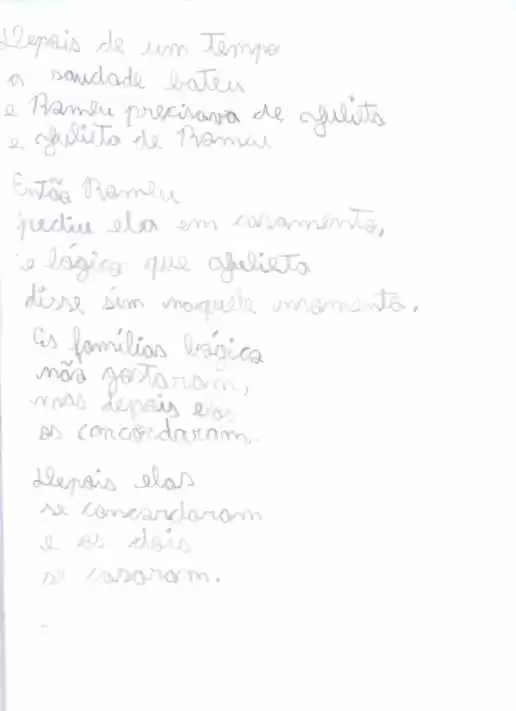 Depois de um tempo
a saudade bateu
e Romeu precisava de Julieta
e Julieta de Romeu
Então Romeu
pediu ela em casamento,
e lógico que Julieta
disse sim naquele momento.
As famílias lógico
não gostaram,
mas depois elas
os concordaram.
Depois elas
se concordaram
e os dois
se casaram.